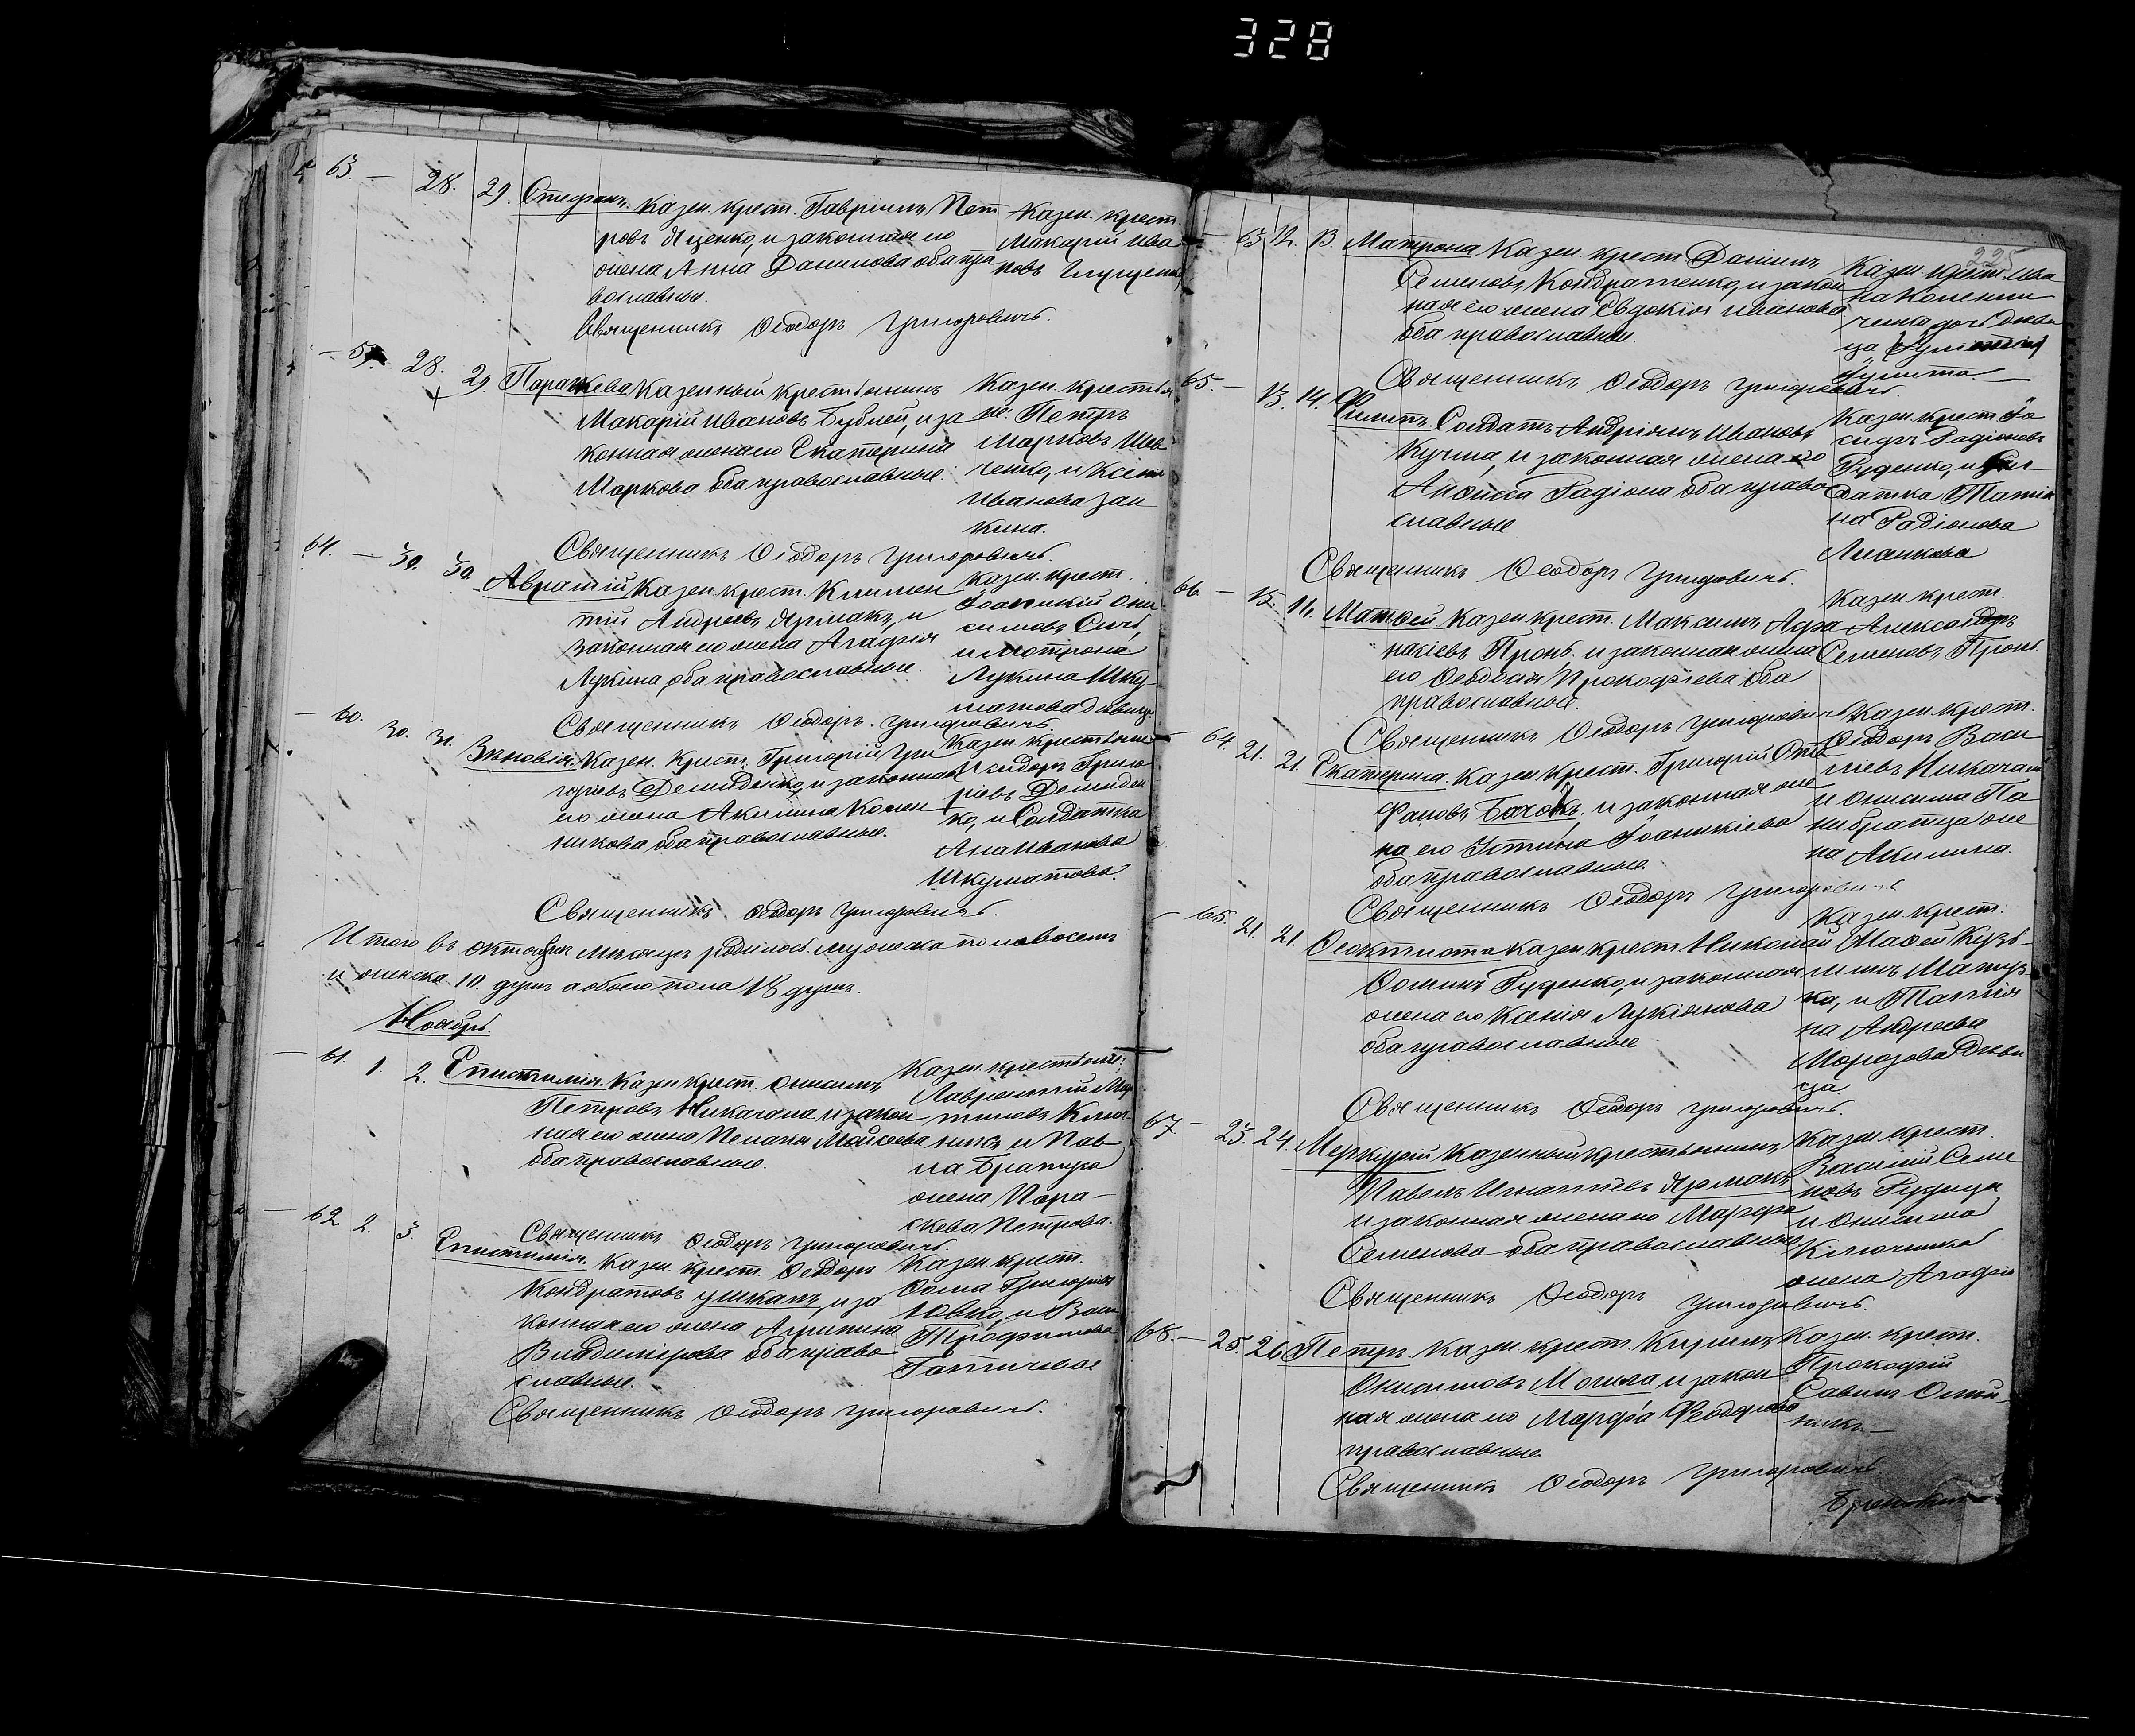 328
63. — 28. 29. Стефанъ. Казен. крест. Гавріилъ Пет
ровъ Яценко, и законная его
жена Анна Данилова оба пра
вославные.
Казен. крест.
Макарій Ива
новъ
Священникъ Ѳеодоръ Григоровичъ.
— 59. 28. 29. Параскева Казенный крестьянинъ
Макарій Ивановъ Бублей, и за
конная жена его Екатерина
Маркова оба православные.
Казен. крестья
не: Петръ
Марковъ Шев
ченко, и Ксенія
Иванова Заи
кина.
Священникъ Ѳеодоръ Григоровичъ
64. — 30. 30. Аврамій Казен. крест. Климен
тій Андреевъ Ярмакъ, и
законная его жена Агафія
Лукина, оба православные.
Казен. крест.
Іоаникій Они
симовъ Сичь,
и Мотрона
Лукина Шку
матова девица
Священникъ Ѳеодоръ Григоровичъ
— 60. 30. 31. Зѣновія. Казен. Крест. Григорій Гри
горіевъ Демиденко, и законная
его жена Акилина
оба православные.
Казен. крестьяне
Исидоръ Григо
ріевъ Демиден
ко, и Солдатка
Ана Иванова
Шкуматова.
Священникъ Ѳеодоръ Григоровичъ.
Итого въ октобрѣ мѣсяцѣ родилось мужеска пола восемъ
и женска 10. душъ а обоего пола 18 душъ.
Ноябрь.
— 61. 1. 2. Епистимія. Казен. крест. Онисимъ
Петровъ Никагала и закон
ная его жена Пелагія Моисеева
оба православные.
Казен. крестьяне:
Лаврентій Мар
тиновъ Ключ
никъ и Пав
ла Братуха
жена Пара-
скева Петрова.
Священникъ Ѳеодоръ Григоровичъ.
— 62. 2. 3. Епистимія. Казен. крест. Ѳеодоръ
Кондратовъ Ушкалъ, и за
конная его жена Агрипина
Владимірова оба право
славные.
Казен. крест.
Ѳома Григоріевъ
Ювко, и
Трофимова
Священникъ Ѳеодоръ Григоровичъ.
225
— 63. 12. 13. Матрона Казен. крест. Даніилъ
Семеновъ Кондратенко, и закон
ная его жена Евдокія Иванова
оба православные.
Казен. крест. Ива
на
дочь деви
ца
Священникъ Ѳеодоръ Григоровичъ.
65. — 13. 14. Филипъ. Солдатъ Андріянъ Ивановъ
Кучма, и законная жена его
Анфиса Радіона оба право
славные
Казен. крест. Іо
сифъ Радіоновъ
Руденко, и Сол
датка Татія
на Радіонова
Священникъ Ѳеодоръ Григоровичъ.
66 — 15. 16. Матѳей Казен. крест. Максимъ Афа
насіевъ Пронь. и законная жена
его Ѳеодосія Прокофіева оба
православные.
Казен. крест.
Александръ
Семеновъ Пронь.
Священникъ Ѳеодоръ Григоровичъ
— 64. 21. 21. Екатерина. Казен. Крест. Григорій Сте
фановъ Бачокъ. и законная же
на его Устина Іоаникіева
оба православные.
Казен. крест.
Ѳеодоръ Васи
ліевъ
и Онисима Па
нибратца же
на Акилина.
Священникъ Ѳеодоръ Григоровичъ
— 65. 21. 21. Ѳеоктиста Казен. крест. Николай
Ѳоминъ Руденко, и законная
жена его Ксенія Лукіянова
оба православные
Казен. крест:
Мойсей Кузь-
минъ Матуз
ка, и Татія
на Андреева
Морозова Деви
ца.
Священникъ Ѳеодоръ Григоровичъ.
67. — 23. 24. Меркурій Казенный крестьянинъ
Павелъ Игнатіевъ Ярмакъ
и законная жена его Марфа
Семенова оба православные
Казен. крест.
Василій Семе
новъ Рудица
и Онисима
Ключника
жена Агафія
Священникъ Ѳеодоръ Григоровичъ.
68. — 25. 26. Петръ. Казен. крест. Кирилъ
Онисимовъ Могила и закон
ная жена его Марфа Феодорова
православные.
Казен. крест.
Прокофій
Савинъ Олий-
никъ. —
Священникъ Ѳеодоръ Григоровичъ.